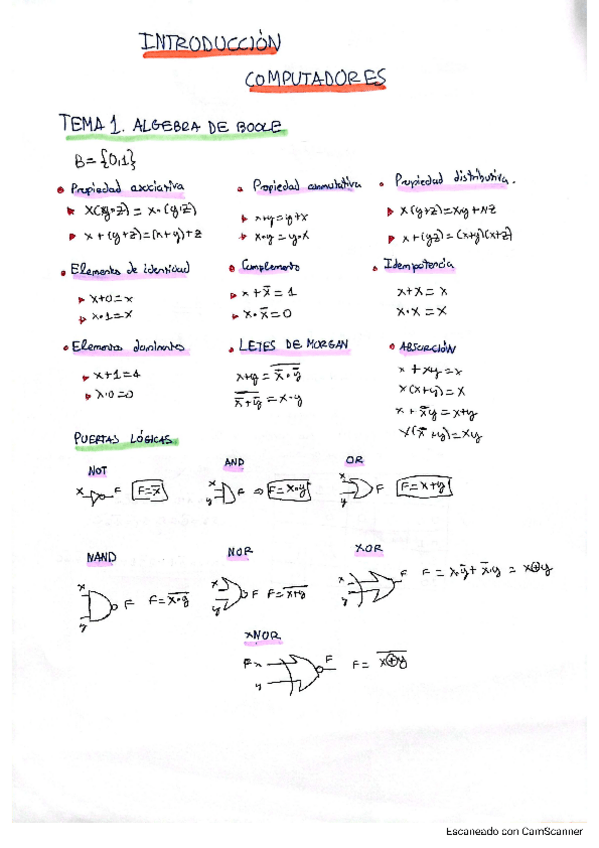 INTRODUCCIÓN
COMPUTADORES
TEMA 1. ALGEBRA DE BOOLE
B = {0,1}
• Propiedad asociativa
X(y·z) = x·(y·z)
x + (y+z) = (x+y)+z
• Propiedad conmutativa
x+y = y+x
x·y = y·x
• Propiedad distributiva.
x(y+z) = xy + xz
x+(yz) = (x+y)(x+z)
• Elementos de identidad
x+0 = x
x·1 = x
• Complemento
x + x̅ = 1
x · x̅ = 0
• Idempotencia
x+x = x
x·x = x
• Elementos dominantes
x+1 = 1
x·0 = 0
• LEYES DE MORGAN
x+y = \overline{x̅·y̅}
\overline{x̅+y̅} = x·y
• ABSORCIÓN
x + xy = x
x(x+y) = x
x + x̅y = x+y
x(x̅+y) = xy
PUERTAS LÓGICAS
NOT
x F F = x̅
AND
x y F ⇒ F = x·y
OR
x y F F = x+y
NAND
x y F F = \overline{x·y}
NOR
x y F F = \overline{x+y}
XOR
x y F F = x·y̅ + x̅·y = x⊕y
XNOR
F x y F F = \overline{x⊕y}
Escaneado con CamScanner